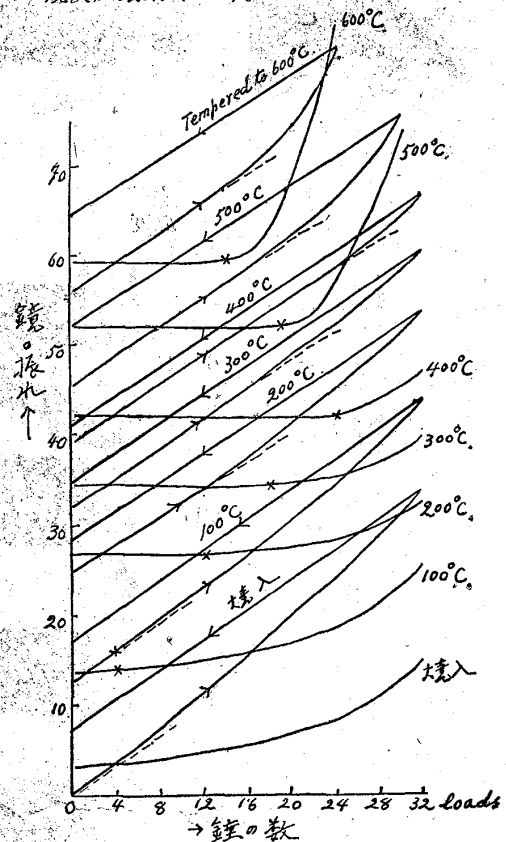 600°C.
Tempered to 600°C.
500°C.
500°C
400°C
300°C
200°C
100°C
焼入
400°C
300°C.
200°C.
100°C.
焼入
70
60
50
40
30
20
10
鏡の振れ↑
0 4 8 12 16 20 24 28 32 loads
→錘の数